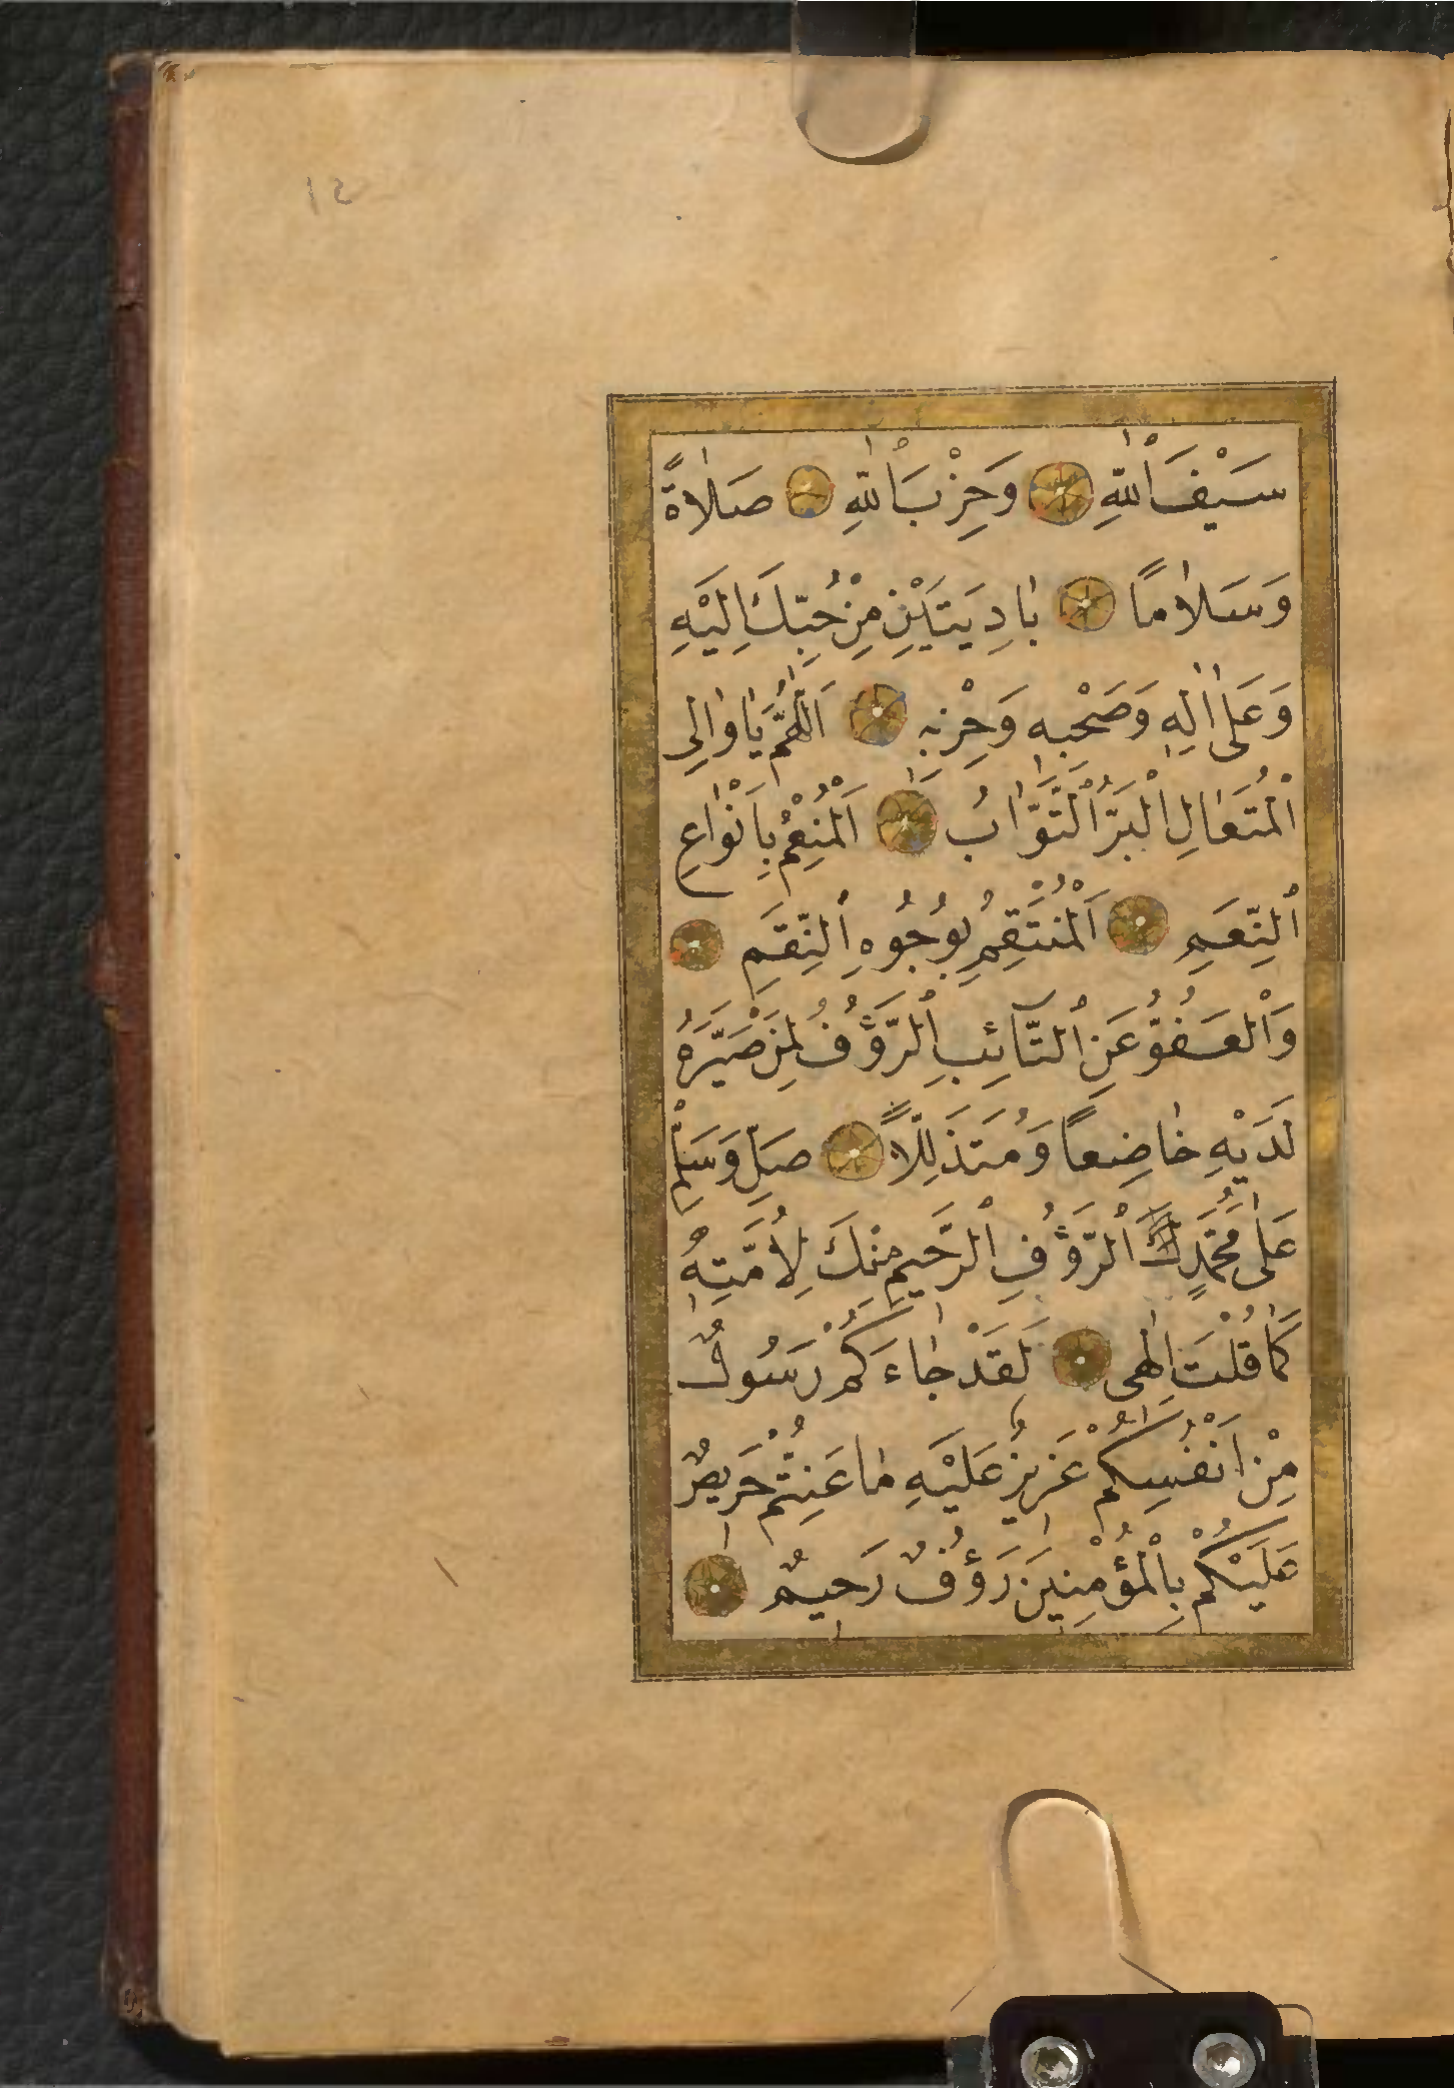 ١٤
سَيْفَ ٱللّٰهِ وَحِزْبَ ٱللّٰهِ صَلٰاةً
وَسَلٰامًا بٰادِيَتَيْنِ مِنْ حُبِّكَ اِلَيْهِ
وَعَلٰى اٰلِهٖ وَصَحْبِهٖ وَحِزْبِهٖ اَللّٰهُمَّ يٰا وٰالِى
ٱلْمُتَعٰالِ ٱلْبَرُّ ٱلتَّوّٰابُ اَلْمُنْعِمُ بِاَنْوٰاعِ
ٱلنِّعَمِ اَلْمُنْتَقِمُ بِوُجُوهِ ٱلنِّقَمِ
وَٱلْعَفُوُّ عَنِ ٱلتَّآئِبِ ٱلرَّؤُفُ لِمَنْ صَيَّرَهُ
لَدَيْهِ خٰاضِعًا وَمُتَذَلِّلًا صَلِّ وَسَلِّمْ
عَلٰى مُحَمَّدٍ ٱلرَّؤُفِ ٱلرَّحِيمِ مِنْكَ لِاُمَّتِهٖ
كَمٰا قُلْتَ اِلٰهِى لَقَدْ جٰاءَكُمْ رَسُولٌ
مِنْ اَنْفُسِكُمْ عَزِيزٌ عَلَيْهِ مٰا عَنِتُّمْ حَرِيصٌ
عَلَيْكُمْ بِٱلْمُؤْمِنِينَ رَؤُفٌ رَحِيمٌ